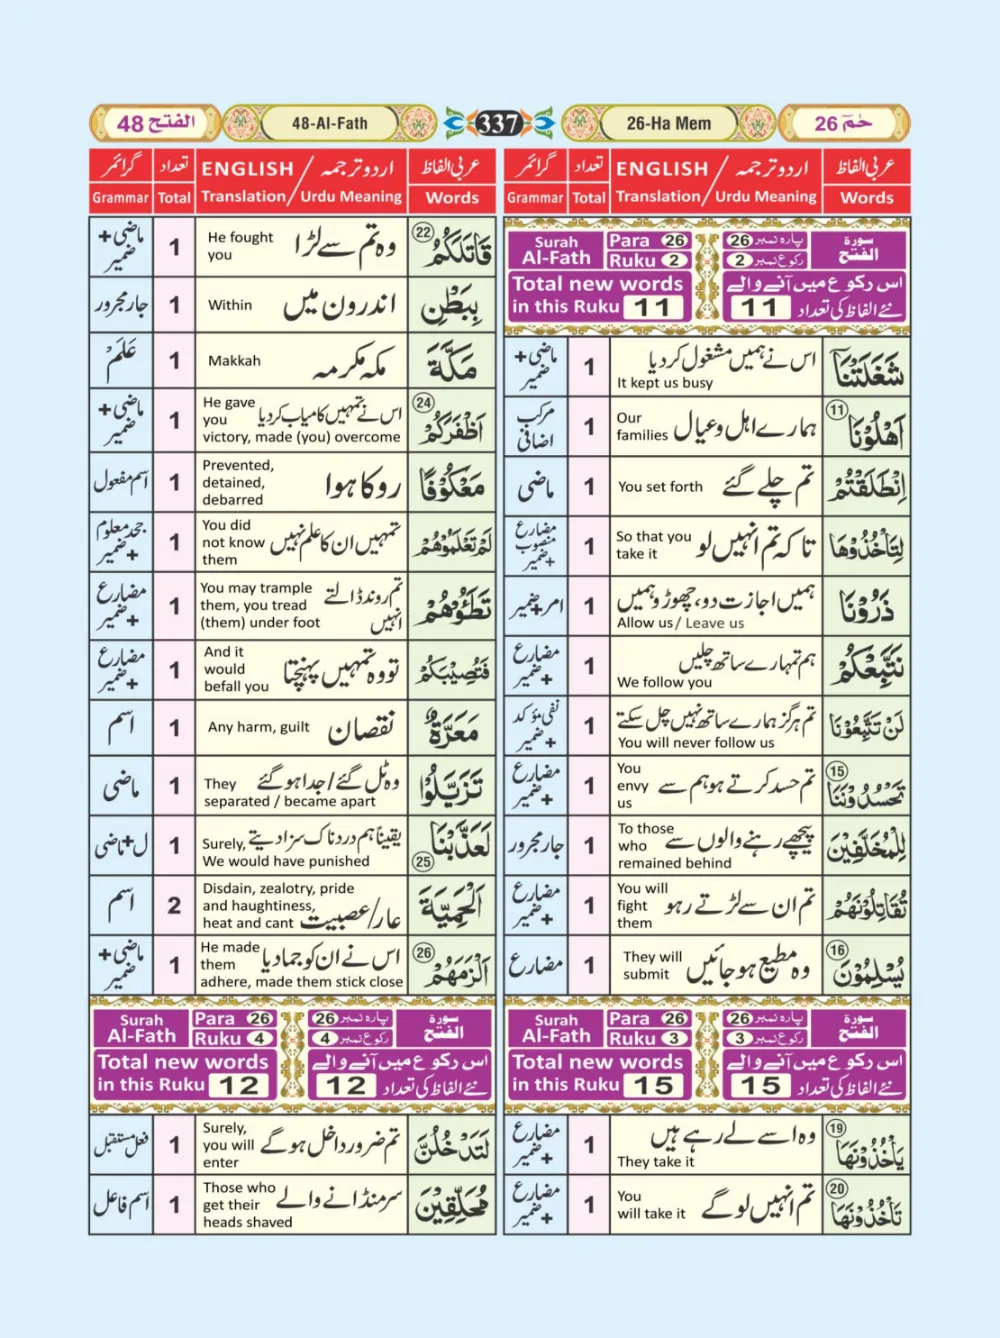 حٰمٓ 26
26-Ha Mem
337
48-Al-Fath
الفتح 48
عربی الفاظ اردو ترجمہ / ENGLISH تعداد گرائمر
Words Translation/ Urdu Meaning Total Grammar
Surah Al-Fath Para 26 Ruku 2 پارہ نمبر 26 رکوع نمبر 2 سورۃ الفتح
Total new words in this Ruku 11 اس رکوع میں آنے والے نئے الفاظ کی تعداد 11
شَغَلَتْنَا اس نے ہمیں مشغول کردیا It kept us busy 1 ماضی + ضمیر
اَهْلُوْنَا ⑪ ہمارے اہل وعیال Our families 1 مرکب اضافی
اِنْطَلَقْتُمْ تم چلے گئے You set forth 1 ماضی
لِتَاْخُذُوْهَا تاکہ تم انہیں لو So that you take it 1 مضارع منصوب + ضمیر
ذَرُوْنَا ہمیں اجازت دو، چھوڑو ہمیں Allow us / Leave us 1 امر + ضمیر
نَتَّبِعْكُمْ ہم تمہارے ساتھ چلیں We follow you 1 مضارع + ضمیر
لَنْ تَتَّبِعُوْنَا تم ہرگز ہمارے ساتھ نہیں چل سکتے You will never follow us 1 نفی مؤکد + ضمیر
تَحْسُدُوْنَنَا ⑮ تم حسد کرتے ہو ہم سے You envy us 1 مضارع + ضمیر
لِلْمُخَلَّفِيْنَ پیچھے رہنے والوں سے To those who remained behind 1 جار مجرور
تُقَاتِلُوْنَهُمْ تم ان سے لڑتے رہو You will fight them 1 مضارع + ضمیر
يُسْلِمُوْنَ ⑯ وہ مطیع ہوجائیں They will submit 1 مضارع
Surah Al-Fath Para 26 Ruku 3 پارہ نمبر 26 رکوع نمبر 3 سورۃ الفتح
Total new words in this Ruku 15 اس رکوع میں آنے والے نئے الفاظ کی تعداد 15
يَاْخُذُوْنَهَا ⑲ وہ اسے لے رہے ہیں They take it 1 مضارع + ضمیر
تَاْخُذُوْنَهَا ⑳ تم انہیں لوگے You will take it 1 مضارع + ضمیر
عربی الفاظ اردو ترجمہ / ENGLISH تعداد گرائمر
Words Translation/ Urdu Meaning Total Grammar
قَاتَلَكُمُ ㉒ وہ تم سے لڑا He fought you 1 ماضی + ضمیر
بِبَطْنِ اندرون میں Within 1 جار مجرور
مَكَّةَ مکہ مکرمہ Makkah 1 عَلَمْ
اَظْفَرَكُمْ ㉔ اس نے تمہیں کامیاب کردیا He gave you victory, made (you) overcome 1 ماضی + ضمیر
مَعْكُوْفًا روکا ہوا Prevented, detained, debarred 1 اسم مفعول
لَمْ تَعْلَمُوْهُمْ تمہیں ان کا علم نہیں You did not know them 1 جحد معلوم + ضمیر
تَطَـُٔوْهُمْ تم روند ڈالتے انہیں You may trample them, you tread (them) under foot 1 مضارع + ضمیر
فَتُصِيْبَكُمْ تو وہ تمہیں پہنچتا And it would befall you 1 مضارع + ضمیر
مَعَرَّةٌ نقصان Any harm, guilt 1 اسم
تَزَيَّلُوْا وہ ٹل گئے / جدا ہوگئے They separated / became apart 1 ماضی
لَعَذَّبْنَا ㉕ یقیناً ہم دردناک سزا دیتے Surely, We would have punished 1 ل + ماضی
اَلْحَمِيَّةَ عار / عصبیت Disdain, zealotry, pride and haughtiness, heat and cant 2 اسم
اَلْزَمَهُمْ ㉖ اس نے ان کو جما دیا He made them adhere, made them stick close 1 ماضی + ضمیر
Surah Al-Fath Para 26 Ruku 4 پارہ نمبر 26 رکوع نمبر 4 سورۃ الفتح
Total new words in this Ruku 12 اس رکوع میں آنے والے نئے الفاظ کی تعداد 12
لَتَدْخُلُنَّ تم ضرور داخل ہوگے Surely, you will enter 1 فعل مستقبل
مُحَلِّقِيْنَ سر منڈانے والے Those who get their heads shaved 1 اسم فاعل